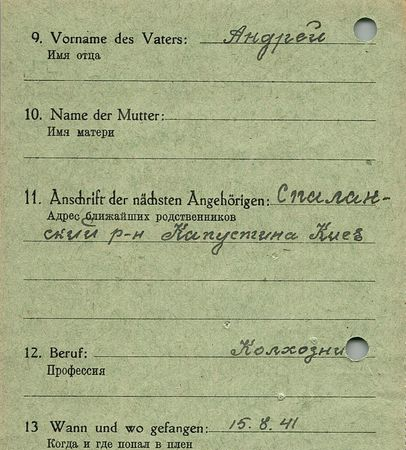 9. Vorname des Vaters: Андрей
Имя отца
10. Name der Mutter:
Имя матери
11. Anschrift der nächsten Angehörigen: Спалан-
Адрес ближайших родственников
ский р-н Капустина Киев
12. Beruf: Колхозни
Профессия
13 Wann und wo gefangen: 15.8.41
Когда и где попал в плен